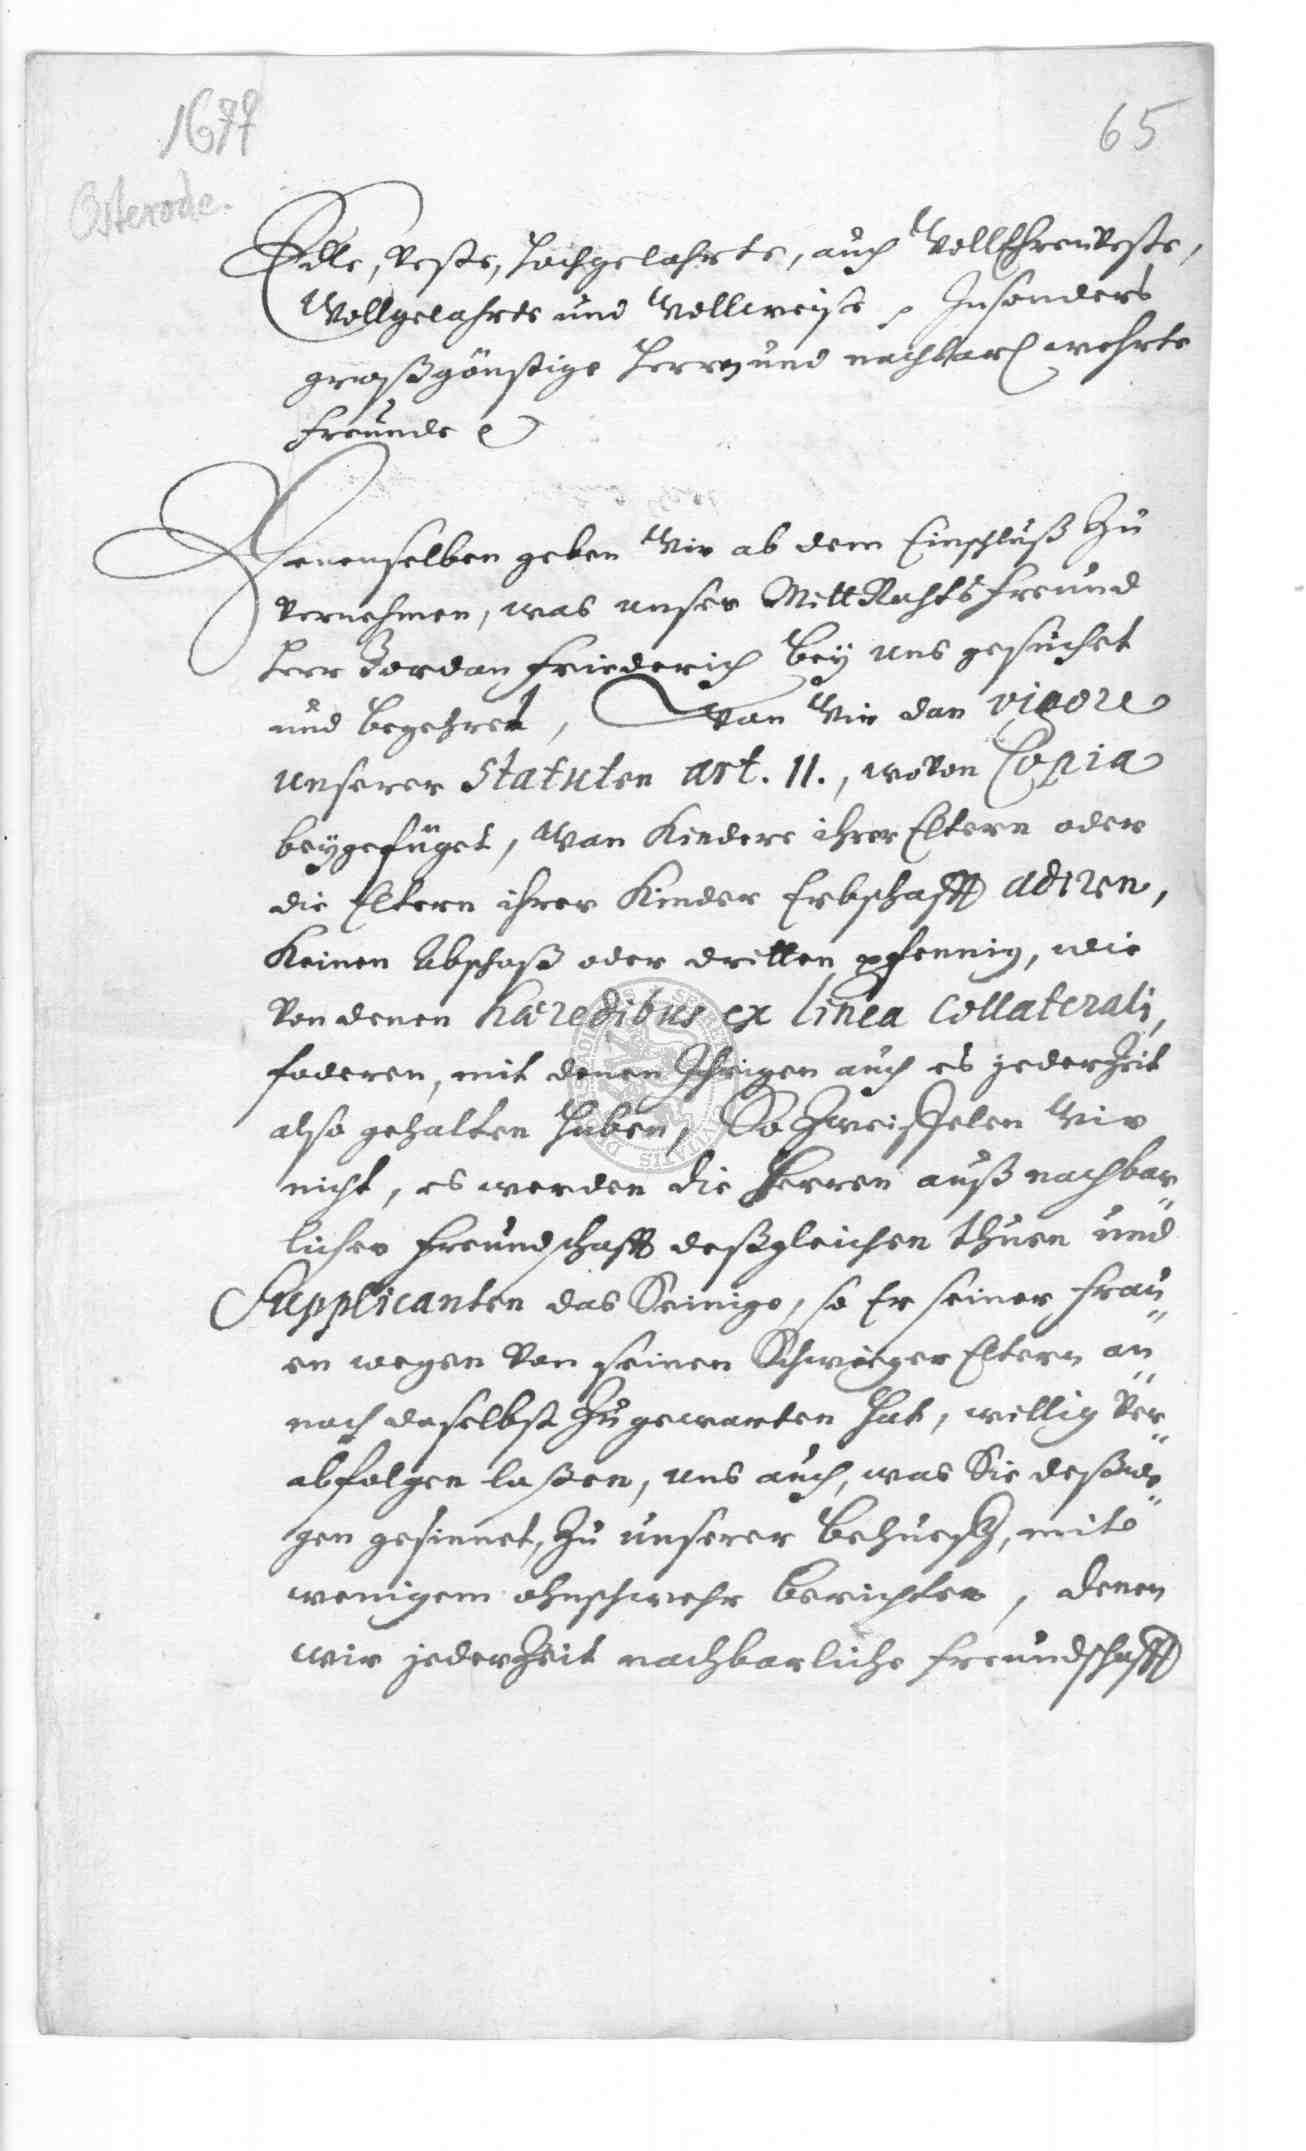 1677
65
Osterode.
Edle, Veste, hochgelahrte, auch WollEhrenVeste,
Wollgelahrte und Wollweise, Insonders
großgönstige Herrn und nachbarl. wehrte
freunde
Denenselben geben Wir ab dem Einschluß zu
vernehmen, was unser MittRahtsfreund
Herr Jordan Friederich bey uns gesuchet
und begehret, Wan Wir dan vigore
unserer Statuten art. 11., wovon Copia
beygefüget, Wan Kindere ihrer Eltern oder
die Eltern ihrer Kinder Erbschafft adiren,
Keinen Abschoß oder dritten pfennig, wie
von denen hæredibus ex linea collaterali,
foderen, mit denen Ihrigen auch es jederzeit
also gehalten haben, So zweiffelen Wir
nicht, es werden die Herren auß nachbar
licher freundschafft deßgleichen thuen und
Supplicanten das Seinige, so Er seiner frau
en wegen von seinen Schwieger Eltern an
noch daselbst zugewarten hat, willig ver
abfolgen laßen, uns auch, was Sie deßwe
gen gesinnet, zu unserer behueff, mit
wenigem ohnschwehr berichten, denen
wir jederzeit nachbarliche freundschafft